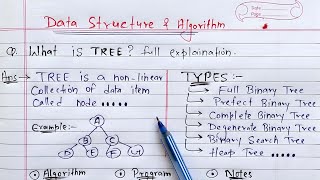 Data Structure & Algorithm
Q. What is TREE? full explaination.
Ans → TREE is a non-linear
Collection of data item
Called node .....
Example:-
A
B C
D E F G
TYPES :-
Full Binary Tree
Prefect Binary Tree
Complete Binary Tree
Degenerate Binary Tree
Binary Search Tree
Heap Tree .....
Algorithm
Program
Notes